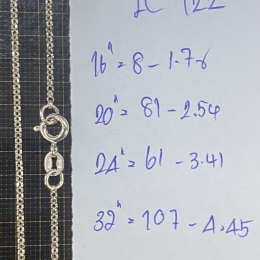 LC 122
16" = 8 - 1.76
20" = 81 - 2.54
24" = 61 - 3.41
32" = 107 - 4.45